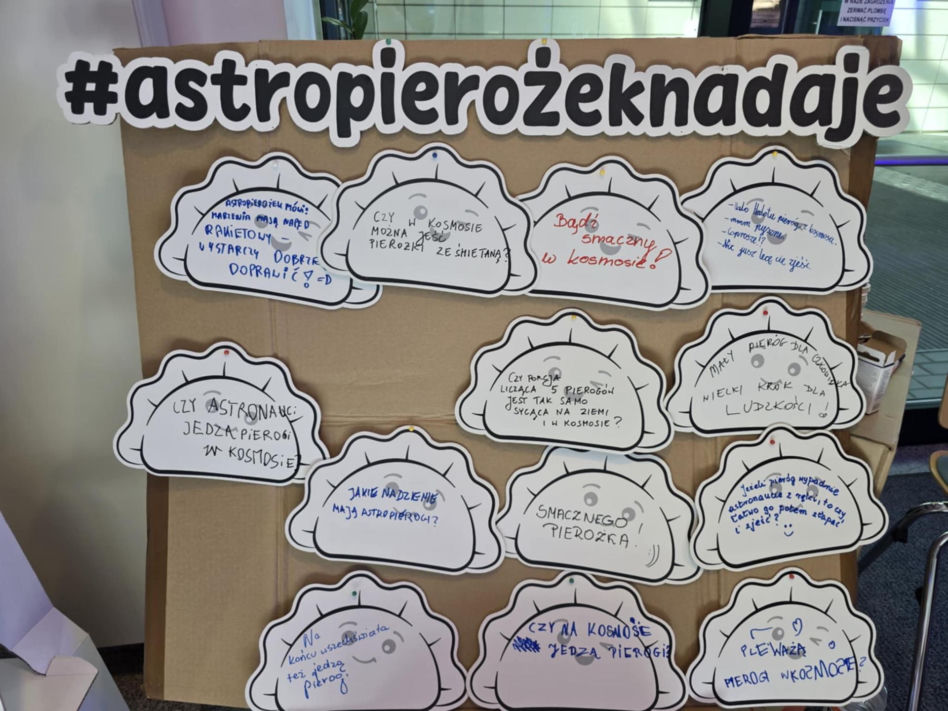 W RAZIE ZAGROŻENIA
ZERWAĆ PLOMBĘ
I NACISNĄĆ PRZYCISK
#astropierożeknadaje
ASTROPIEROŻEK MÓWI:
MARZENIA MAJĄ NAPĘD
RAKIETOWY
WYSTARCZY DOBRZE
DOPRAWIĆ! =D
CZY W KOSMOSIE
MOŻNA JEŚĆ
PIEROŻKI ZE ŚMIETANĄ?
Bądź
smaczny
w kosmosie!
pieróg z kosmosu.
- Nie, just
CZY ASTRONAUCI
JEDZĄ PIEROGI
W KOSMOSIE?
CZY PORCJA
LICZĄCA 5 PIEROGÓW
JEST TAK SAMO
SYCĄCA NA ZIEMI
I W KOSMOSIE?
MAŁY PIERÓG DLA CZŁOWIEKA
WIELKI KROK DLA
LUDZKOŚCI!
JAKIE NADZIENIE
MAJĄ ASTROPIEROGI?
SMACZNEGO
PIEROŻKA!
Jeżeli pieróg wypadnie
astronaucie z ręki, to czy
łatwo go potem złapać
i zjeść?
Na
końcu wszechświata
też jedzą
pierogi
CZY NA KOSMOSIE
JEDZĄ PIEROGI?
PLEWAJĄ
PIEROGI W KOZMOZIE?